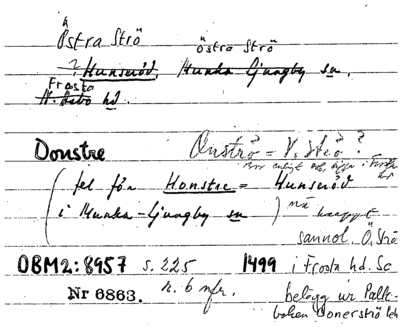 Östra Strö Östra Strö
? Hunseröd, Munka Ljungby sn,
Frosta
N. Åsbo hd.
Donstre Onströ = V. Strö?
(fel för Honstre = Hunseröd
i Munka-Ljungby sn) må knappt
sannol. Ö. Strö
OBM2:8957 s. 225 1499 i Frosta hd. Sc
Nr 6863. r. 6 nfr. belägg ur Palt-
boken Donerströ